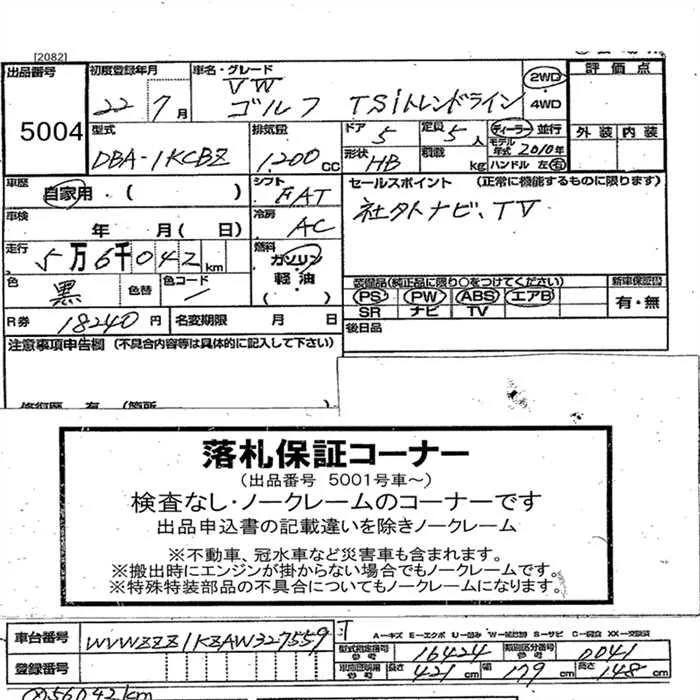 [2082]
出品番号 5004
初度登録年月 22年 7月
車名・グレード VW ゴルフ TSiトレンドライン
2WD 4WD
評価点
外装 内装
型式 DBA-1KCBZ
排気量 1,200CC
ドア 5 定員 5人
形状 HB 積載 kg
ディーラー 並行
モデル年式 2010年
ハンドル 左 右
車歴 自家用・( )
シフト FAT
セールスポイント (正常に機能するものに限ります)
社外ナビ、TV
車検 年 月( 日)
冷房 AC
走行 5万6千042km
燃料 ガソリン 軽油 ( )
色 黒 色替 色コード
装備品(純正品に限り○をつけてください) 新車保証書
PS PW ABS エアB
SR ナビ TV
有・無
R券 18240円 名変期限 月 日
後日品
注意事項申告欄 (不具合内容等は具体的に記入して下さい)
修復歴 有 (箇所
落札保証コーナー
(出品番号 5001号車~)
検査なし・ノークレームのコーナーです
出品申込書の記載違いを除きノークレーム
※不動車、冠水車など災害車も含まれます。
※搬出時にエンジンが掛からない場合でもノークレームです。
※特殊特装部品の不具合についてもノークレームになります。
車台番号 WVWZZZ1KZAW327559
A-キズ E-エクボ U-凹み W-補修跡 S-サビ C-腐食 XX-交換済
型式指定番号 参考 16424 類別区分番号 参考 0041
登録番号
長さ 421cm 幅 179cm 高さ 148cm
56042km